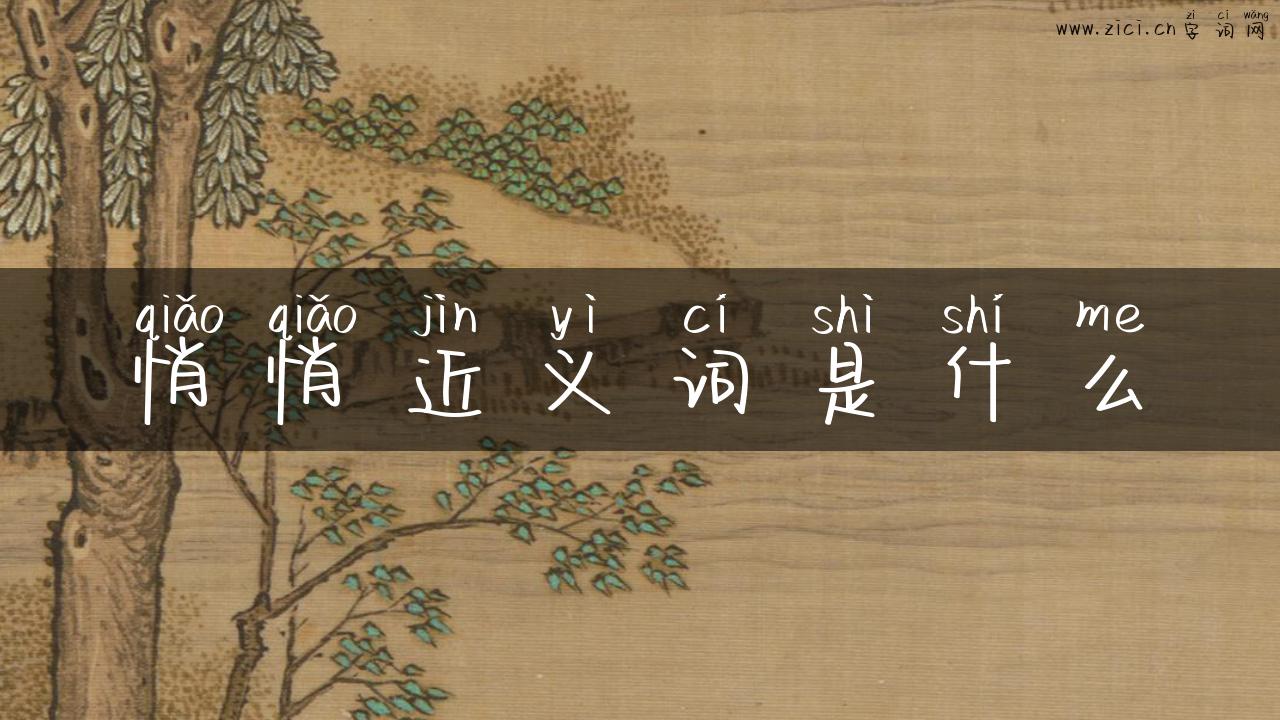 zì cí wǎng
www.zici.cn 字词网
qiǎo qiǎo jìn yì cí shì shí me
悄悄近义词是什么